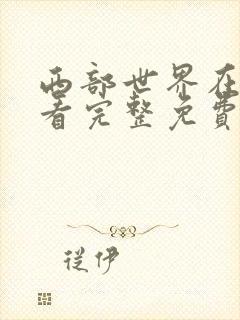 西部世界在
看完整免費
從伊